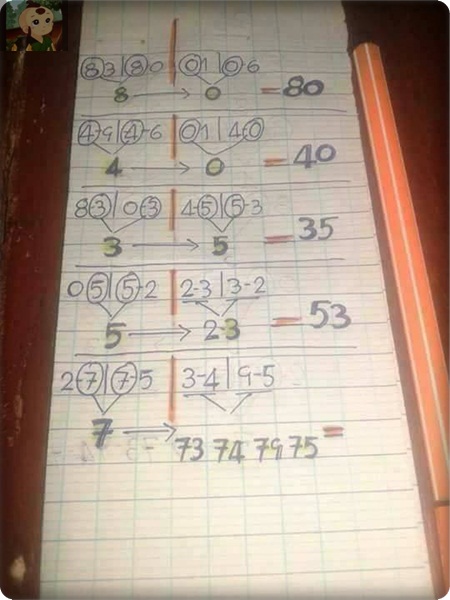 83|80 01|0-6
8 → 0 = 80
4-9|4-6 01|4-0
4 → 0 = 40
83|03 45|5-3
3 → 5 = 35
05|5-2 2-3|3-2
5 → 23 = 53
2-7|7-5 3-4|9-5
7 → 73 74 79 75 =